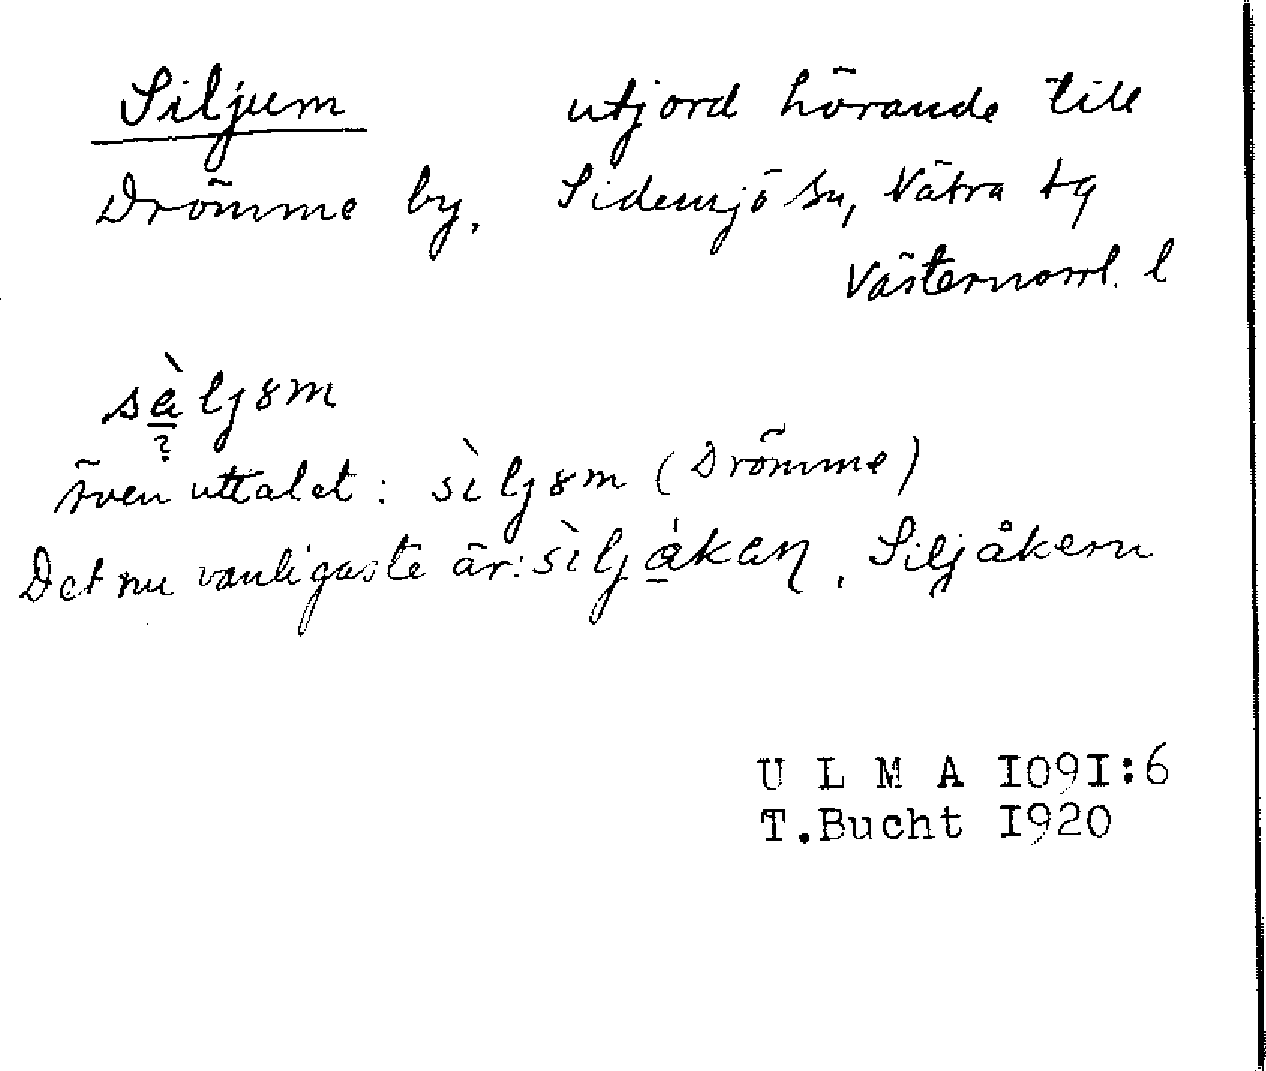 Siljum utjord hörande till
Drömme by, Sidensjö sn, Nätra tg
Västernorrl. l
sèljɞm
?
även uttalet: sìljɞm (Drömme)
Det nu vanligaste är: sìljákaɳ, Siljåkern
U L M A I09I:6
T.Bucht I920